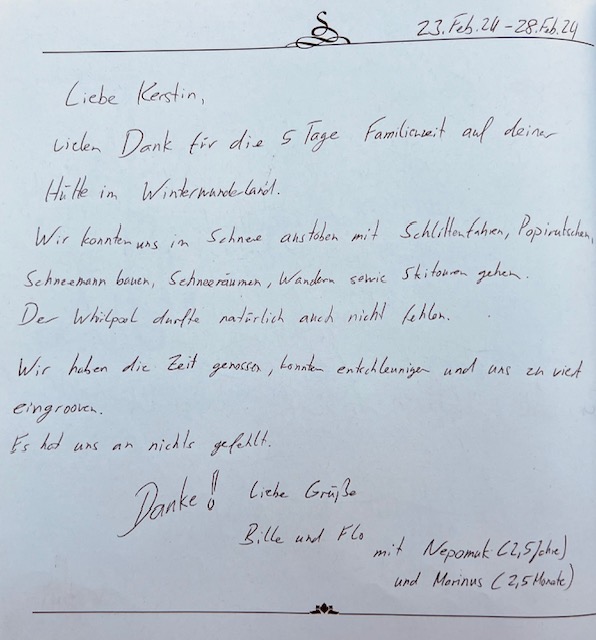 23. Feb. 24 - 28. Feb. 24
Liebe Kerstin,
vielen Dank für die 5 Tage Familienzeit auf deiner
Hütte im Winterwunderland.
Wir konnten uns im Schnee anstoben mit Schlittenfahren, Popirutschen,
Schneemann bauen, Schneeräumen, Wandern sowie Skitouren gehen.
Der Whirlpool durfte natürlich auch nicht fehlen.
Wir haben die Zeit genossen, konnten entschleunigen und uns zu viert
eingrooven.
Es hat uns an nichts gefehlt.
Danke! Liebe Grüße
Bille und Flo
mit Nepomuk (2,5 Jahre)
und Marinus (2,5 Monate)